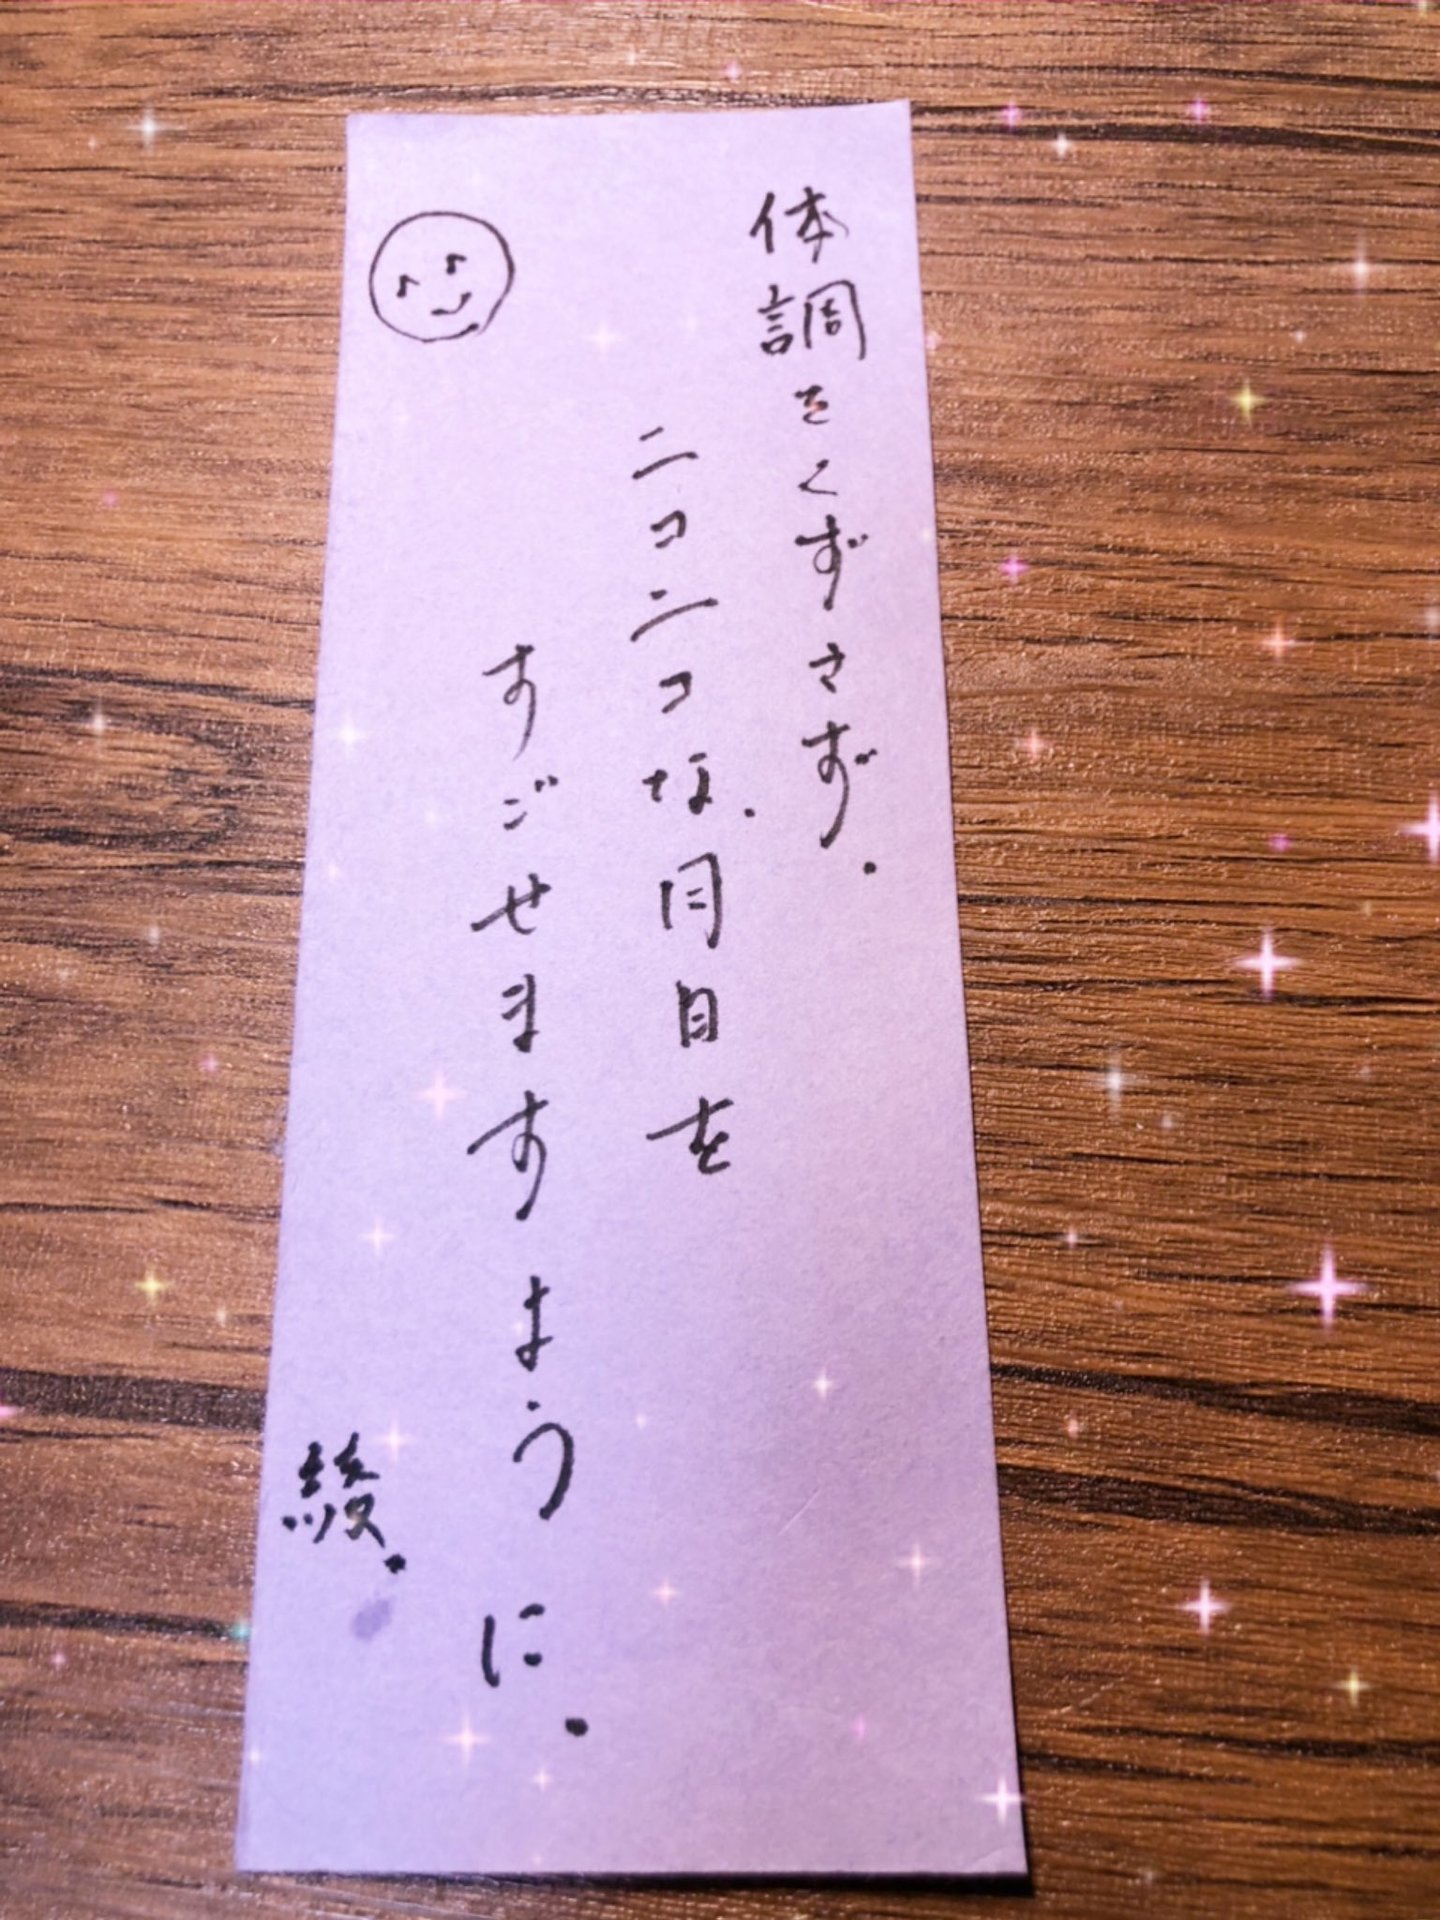 体調をくずさず.
ニコニコな.月日を
すごせますように.
綾.